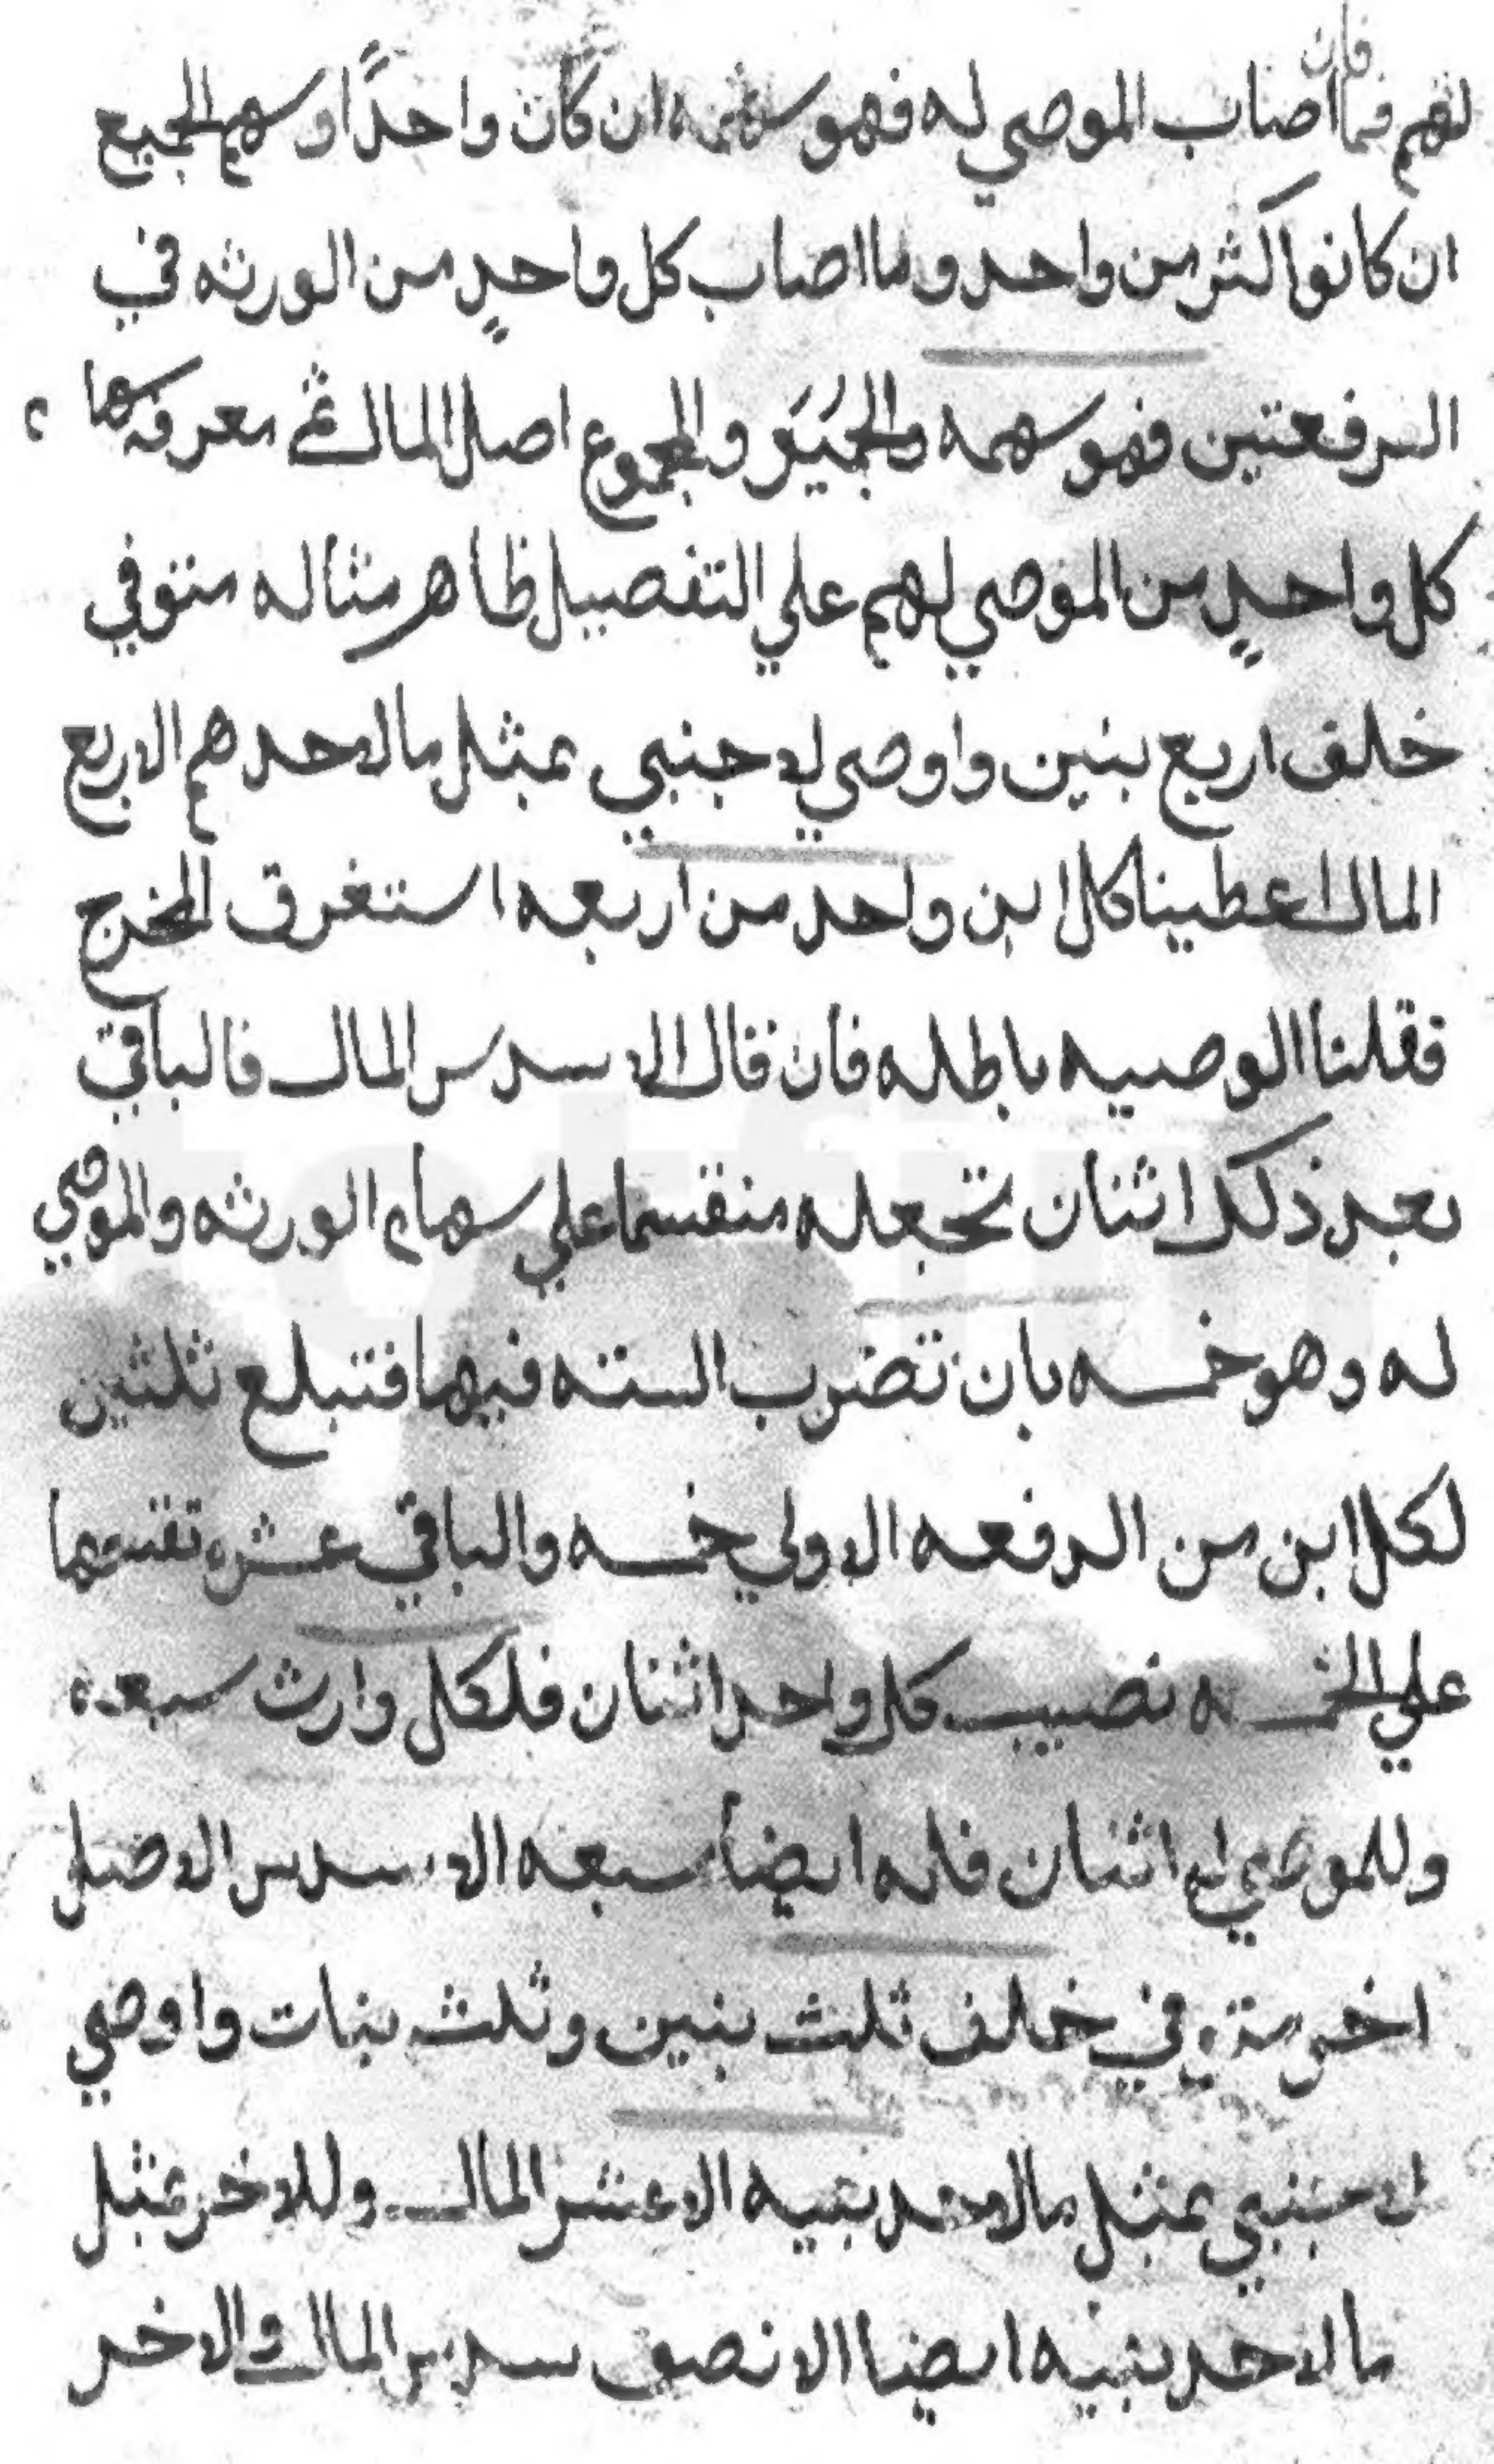 فان
لهم فما اصاب الموصي له فهو سهمه ان كان واحدًا او سهم الجميع
ان كانوا اكثر من واحد وما اصاب كل واحدٍ من الورثه في
الدفعتين فهو سهمه والمجموع اصل المال ثم معرفه سهما
كل واحدٍ من الموصي لهم علي التفصيل ظاهر مثاله متوفي
خلف اربع بنين واوصي لاجنبي بمثل ما لاحدهم الا ربع
المال اعطينا كل ابن واحد من اربعه استغرق المخرج
فقلنا الوصيه باطله فان قال الا سدس المال فالباقي
بعد ذلك اثنان تجعله منقسما علي سهام الورثه والموصي
له وهو خمسه بان تضرب السته فيها فتبلغ ثلثين
لكل ابن من الدفعه الاولي خمسه والباقي عشره تقسمها
علي الخمسه نصيب كل واحد اثنان فلكل وارث سبعه
وللموصي له اثنان فله ايضا سبعه الا سدس الاصل
اخر متوفي خلف ثلث بنين وثلث بنات واوصي
لاجنبي بمثل ما لاحد بنيه الا عشر المال وللاخر بمثل
ما لاحد بنيه ايضا الا نصف سدس المال والاخر